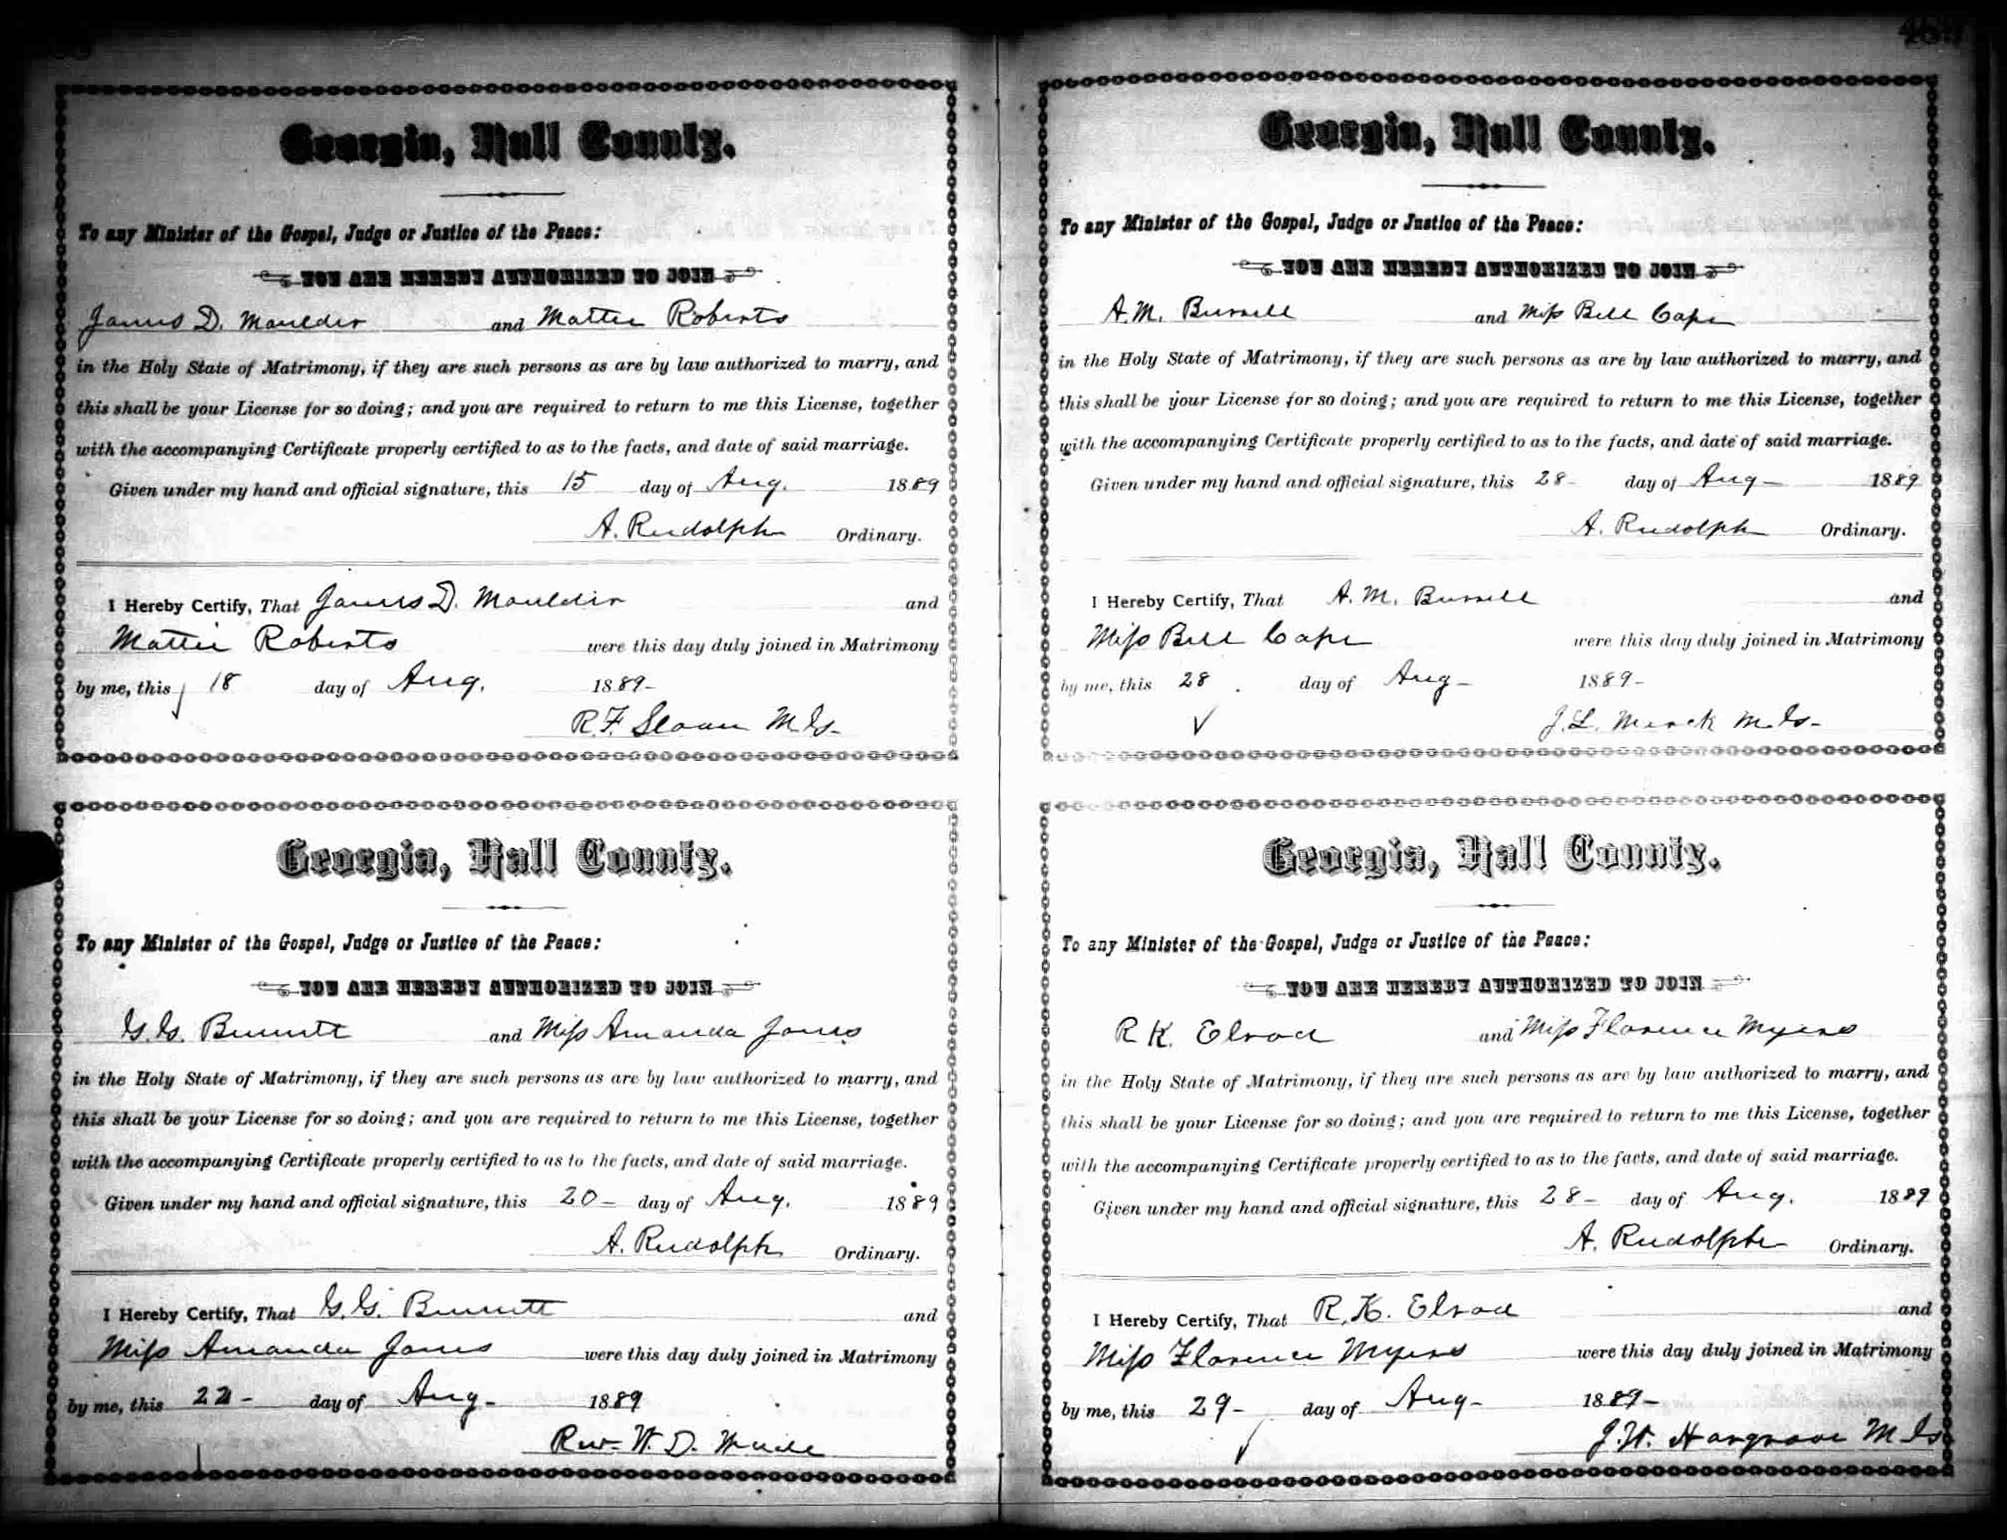 Georgia, Hall County.
To any Minister of the Gospel, Judge or Justice of the Peace:
YOU ARE HEREBY AUTHORIZED TO JOIN
James D. Moulder and Mattie Roberts
in the Holy State of Matrimony, if they are such persons as are by law authorized to marry, and
this shall be your License for so doing; and you are required to return to me this License, together
with the accompanying Certificate properly certified to as to the facts, and date of said marriage.
Given under my hand and official signature, this 15 day of Aug. 1889
A. Rudolph Ordinary.
I Hereby Certify, That James D. Moulder and
Mattie Roberts were this day duly joined in Matrimony
by me, this 18 day of Aug. 1889-
R.F. Sloan M.G-
Georgia, Hall County.
To any Minister of the Gospel, Judge or Justice of the Peace:
YOU ARE HEREBY AUTHORIZED TO JOIN
G.G. Bennett and Miss Amanda Jones
in the Holy State of Matrimony, if they are such persons as are by law authorized to marry, and
this shall be your License for so doing; and you are required to return to me this License, together
with the accompanying Certificate properly certified to as to the facts, and date of said marriage.
Given under my hand and official signature, this 20- day of Aug. 1889
A. Rudolph Ordinary.
I Hereby Certify, That G.G. Bennett and
Miss Amanda Jones were this day duly joined in Matrimony
by me, this 22- day of Aug- 1889
Rev. W. D.
Georgia, Hall County.
To any Minister of the Gospel, Judge or Justice of the Peace:
YOU ARE HEREBY AUTHORIZED TO JOIN
A.M. Burrell and Miss Bell Cape
in the Holy State of Matrimony, if they are such persons as are by law authorized to marry, and
this shall be your License for so doing; and you are required to return to me this License, together
with the accompanying Certificate properly certified to as to the facts, and date of said marriage.
Given under my hand and official signature, this 28- day of Aug- 1889
A. Rudolph Ordinary.
I Hereby Certify, That A. M. Burrell and
Miss Bell Cape were this day duly joined in Matrimony
by me, this 28 day of Aug- 1889-
J. L. Merck M.G-
Georgia, Hall County.
To any Minister of the Gospel, Judge or Justice of the Peace:
YOU ARE HEREBY AUTHORIZED TO JOIN
R K. Elrod and Miss Florence Myers
in the Holy State of Matrimony, if they are such persons as are by law authorized to marry, and
this shall be your License for so doing; and you are required to return to me this License, together
with the accompanying Certificate properly certified to as to the facts, and date of said marriage.
Given under my hand and official signature, this 28- day of Aug. 1889
A. Rudolph Ordinary.
I Hereby Certify, That R. K. Elrod and
Miss Florence Myers were this day duly joined in Matrimony
by me, this 29- day of Aug- 1889-
J.W. Hargrove M G